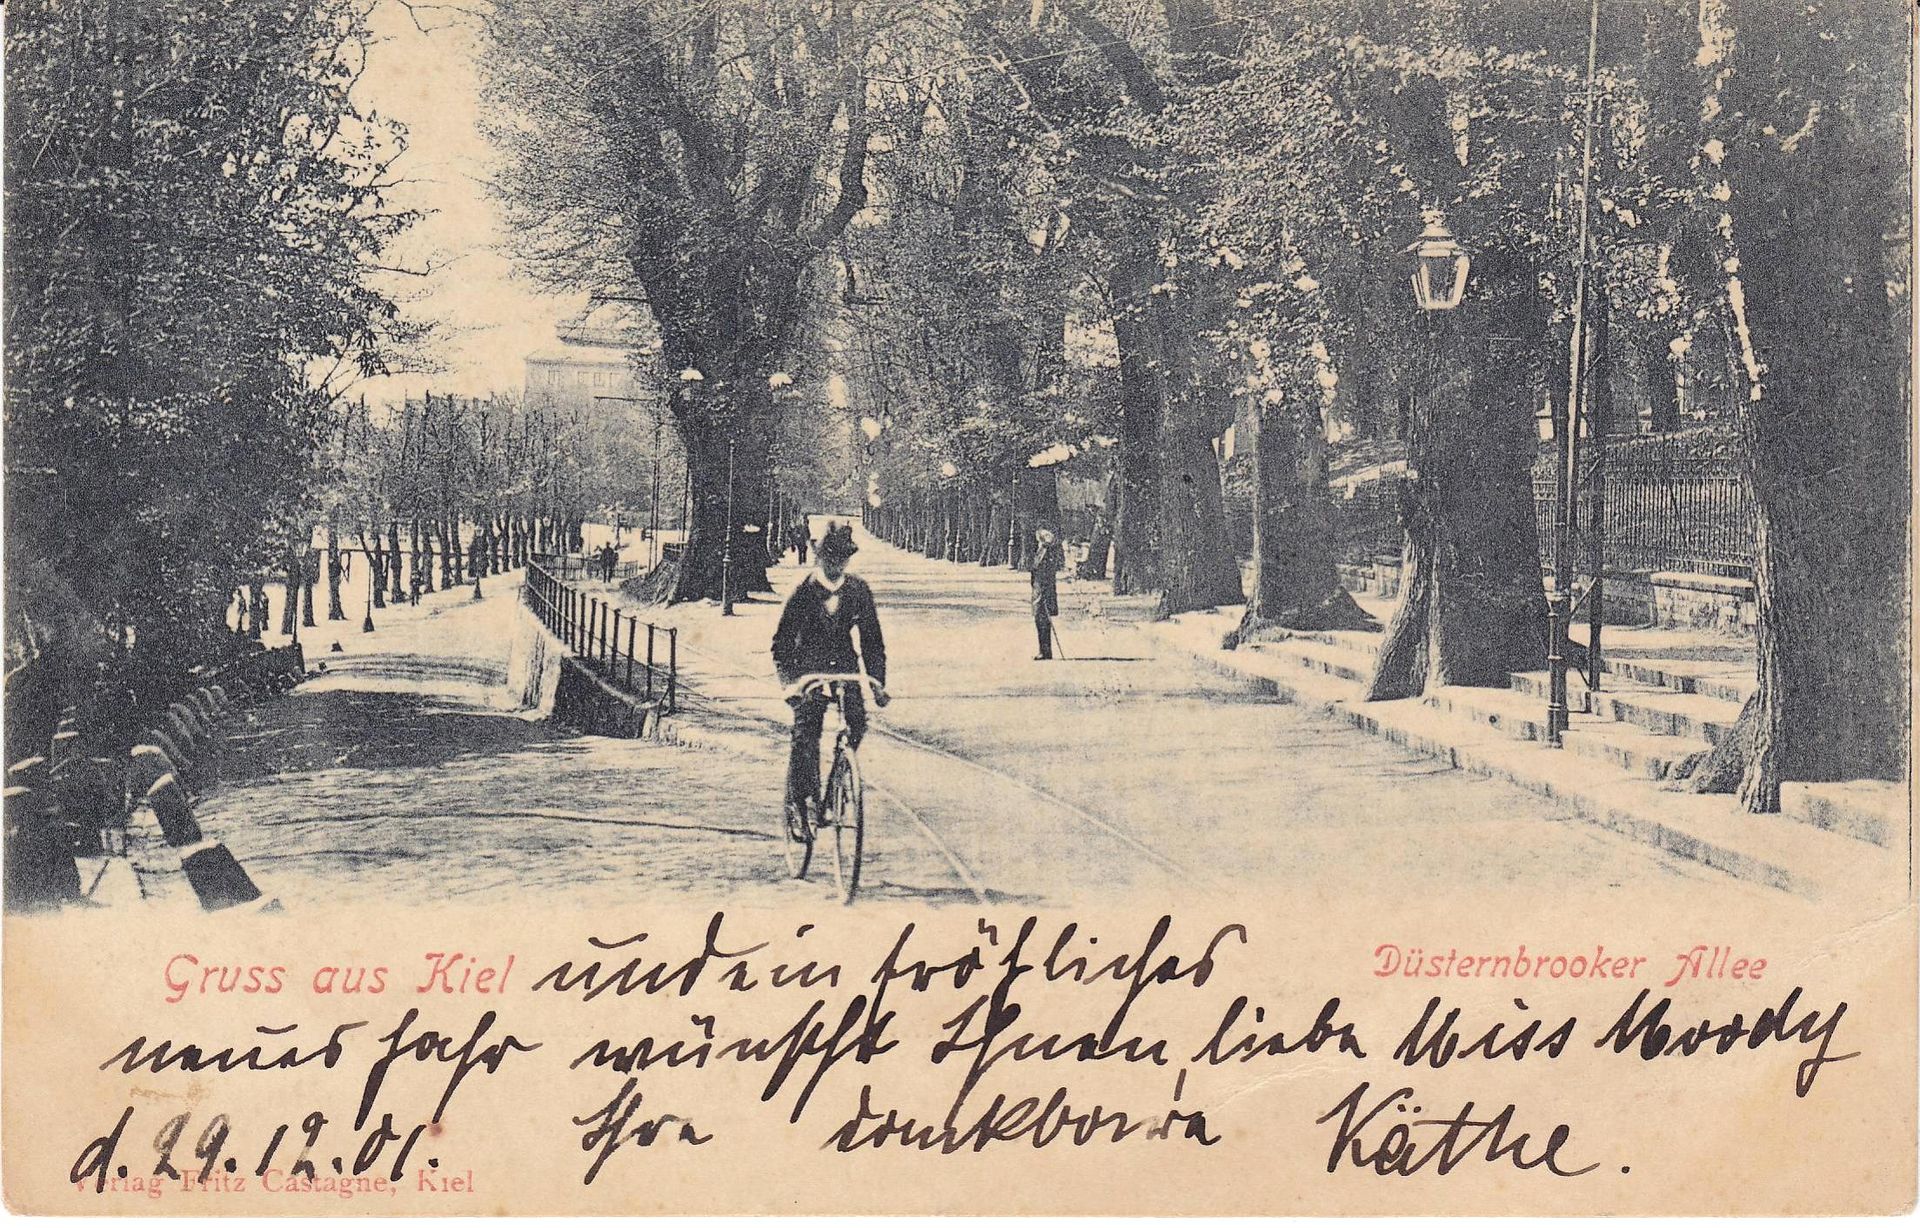 Gruss aus Kiel und ein fröhliches Düsternbrooker Allee
neues Jahr wünscht Ihnen, liebe Miss Moody
d. 29.12.01. Ihre dankbare Käthe.
Verlag Fritz Castagne, Kiel